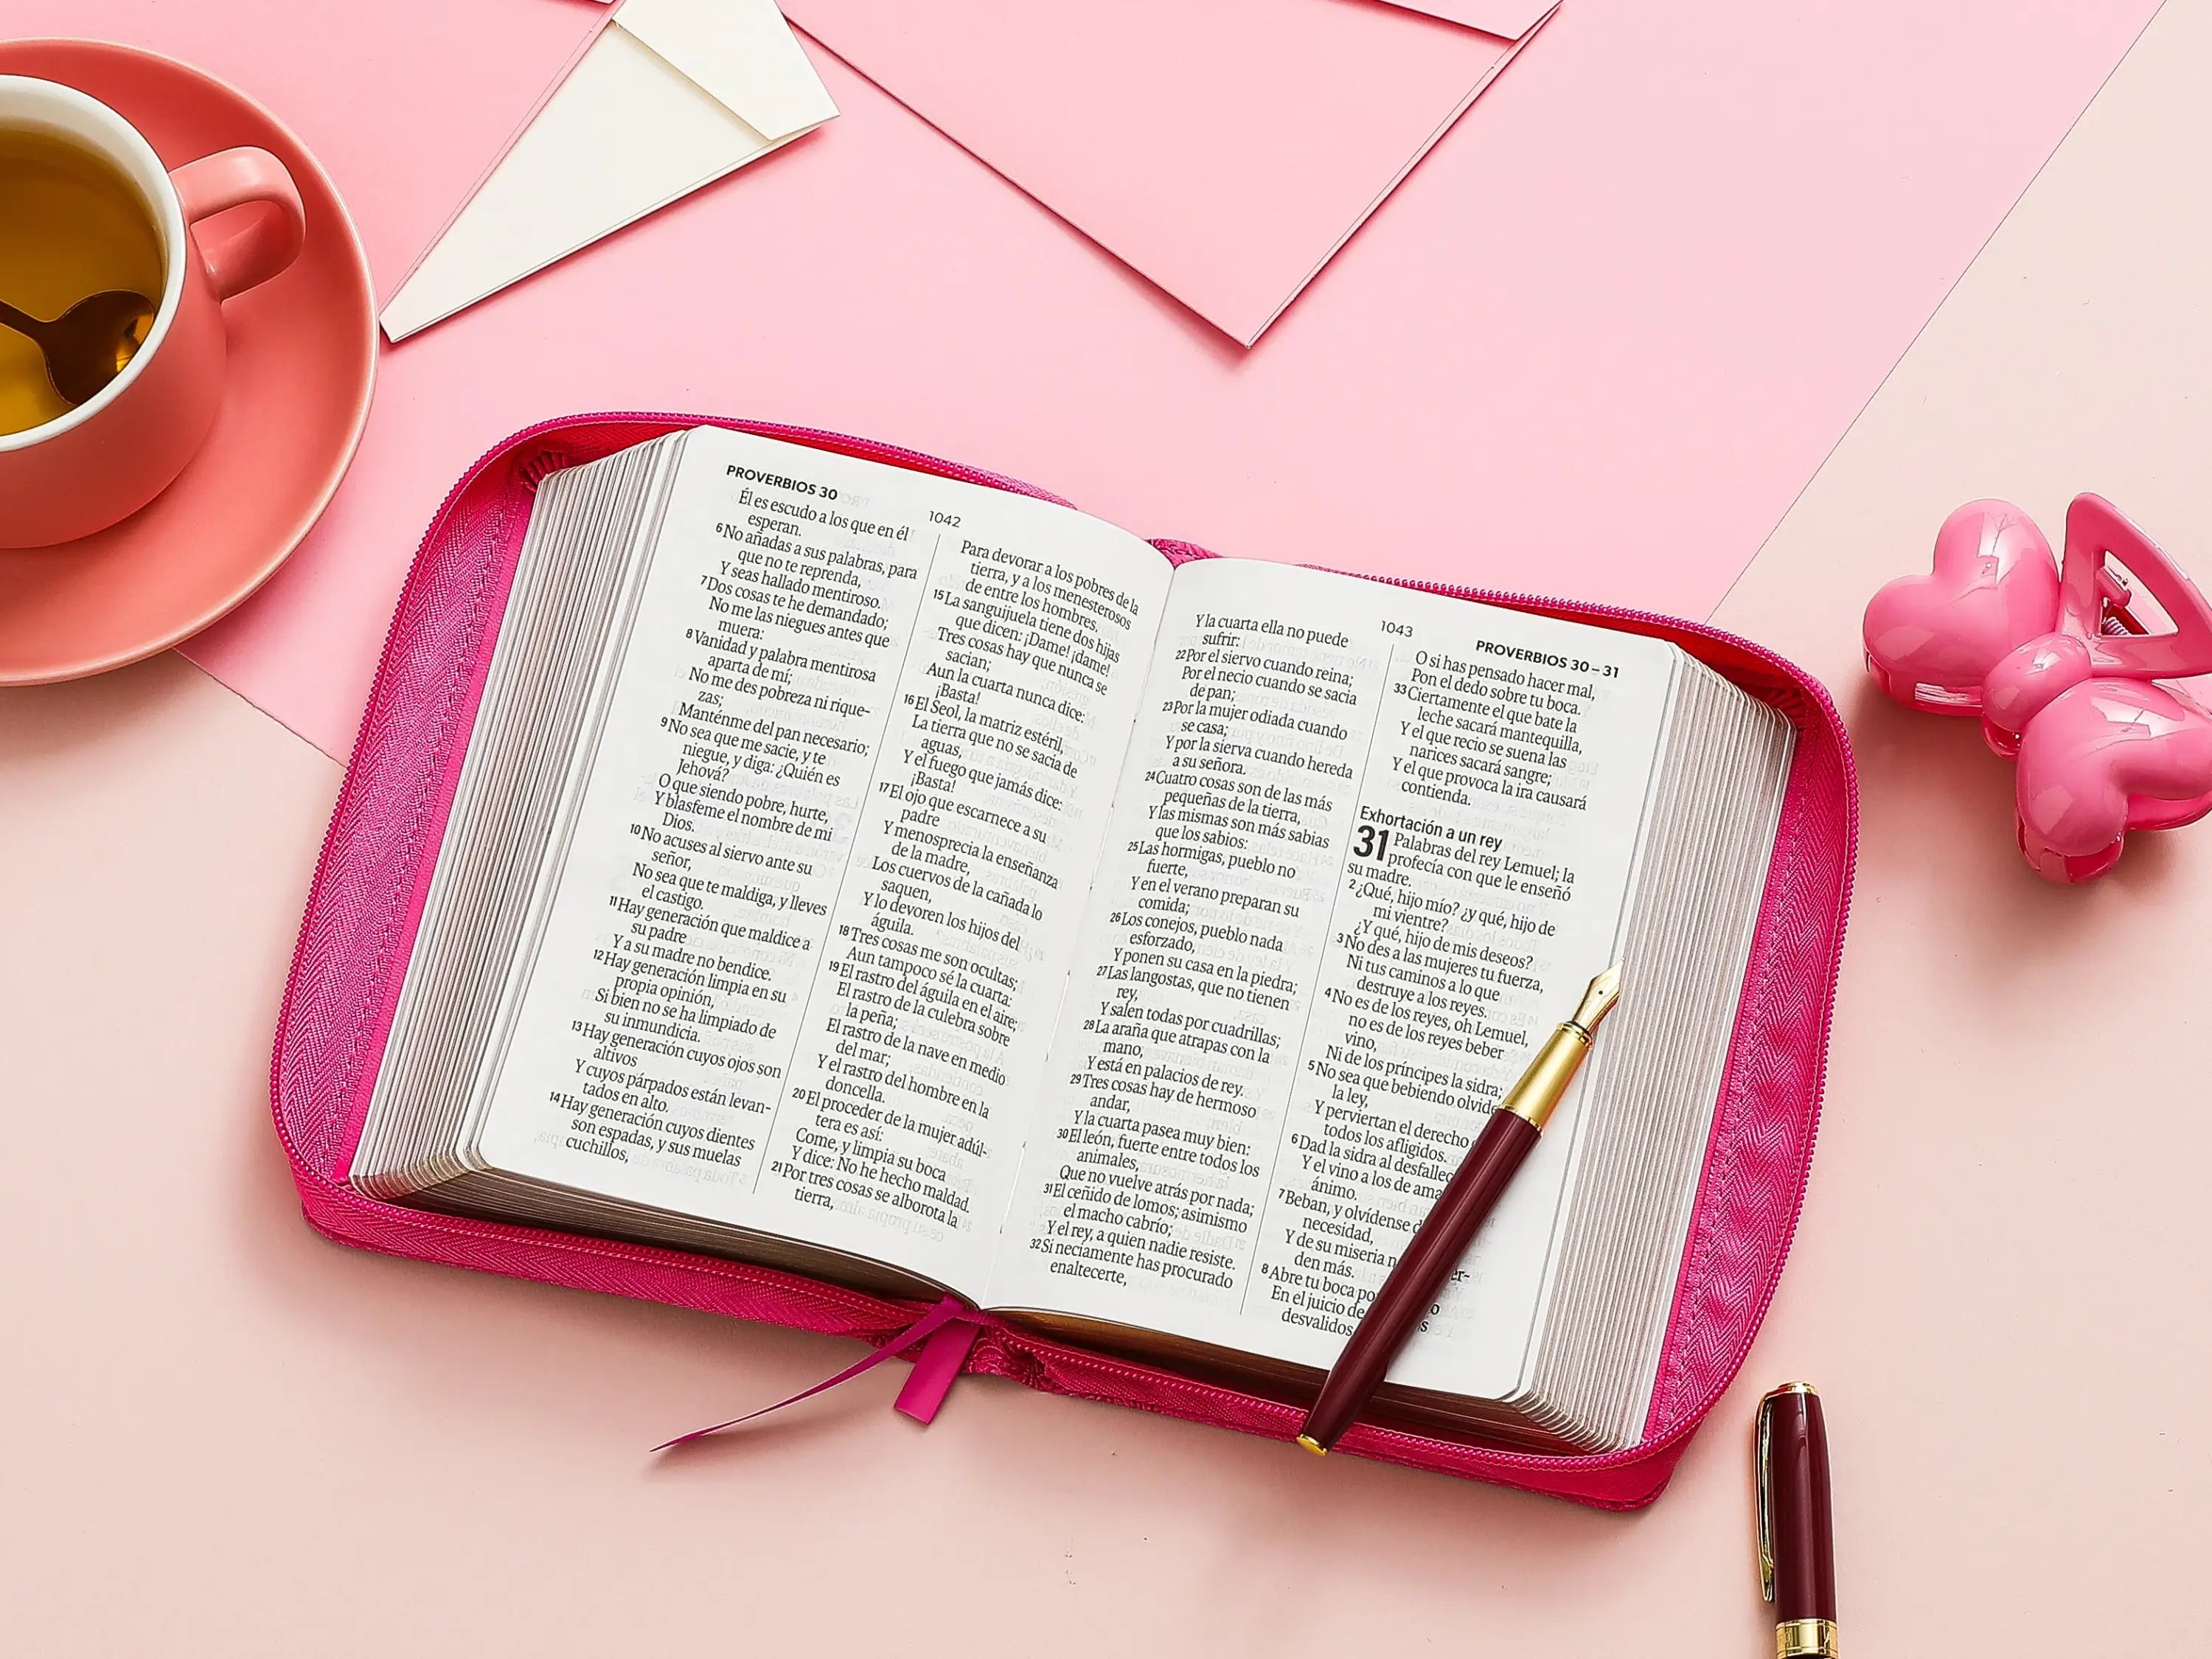 PROVERBIOS 30
1042
Él es escudo a los que en él
esperan.
6 No añadas a sus palabras, para
que no te reprenda,
Y seas hallado mentiroso.
7 Dos cosas te he demandado;
No me las niegues antes que
muera:
8 Vanidad y palabra mentirosa
aparta de mí;
No me des pobreza ni rique-
zas;
Manténme del pan necesario;
9 No sea que me sacie, y te
niegue, y diga: ¿Quién es
Jehová?
O que siendo pobre, hurte,
Y blasfeme el nombre de mi
Dios.
10 No acuses al siervo ante su
señor,
No sea que te maldiga, y lleves
el castigo.
11 Hay generación que maldice a
su padre
Y a su madre no bendice.
12 Hay generación limpia en su
propia opinión,
Si bien no se ha limpiado de
su inmundicia.
13 Hay generación cuyos ojos son
altivos
Y cuyos párpados están levan-
tados en alto.
14 Hay generación cuyos dientes
son espadas, y sus muelas
cuchillos,
Para devorar a los pobres de la
tierra, y a los menesterosos
de entre los hombres.
15 La sanguijuela tiene dos hijas
que dicen: ¡Dame! ¡dame!
Tres cosas hay que nunca se
sacian;
Aun la cuarta nunca dice:
¡Basta!
16 El Seol, la matriz estéril,
La tierra que no se sacia de
aguas,
Y el fuego que jamás dice:
¡Basta!
17 El ojo que escarnece a su
padre
Y menosprecia la enseñanza
de la madre,
Los cuervos de la cañada lo
saquen,
Y lo devoren los hijos del
águila.
18 Tres cosas me son ocultas;
Aun tampoco sé la cuarta:
19 El rastro del águila en el aire;
El rastro de la culebra sobre
la peña;
El rastro de la nave en medio
del mar;
Y el rastro del hombre en la
doncella.
20 El proceder de la mujer adúl-
tera es así:
Come, y limpia su boca
Y dice: No he hecho maldad.
21 Por tres cosas se alborota la
tierra,
1043
PROVERBIOS 30 – 31
Y la cuarta ella no puede
sufrir:
22 Por el siervo cuando reina;
Por el necio cuando se sacia
de pan;
23 Por la mujer odiada cuando
se casa;
Y por la sierva cuando hereda
a su señora.
24 Cuatro cosas son de las más
pequeñas de la tierra,
Y las mismas son más sabias
que los sabios:
25 Las hormigas, pueblo no
fuerte,
Y en el verano preparan su
comida;
26 Los conejos, pueblo nada
esforzado,
Y ponen su casa en la piedra;
27 Las langostas, que no tienen
rey,
Y salen todas por cuadrillas;
28 La araña que atrapas con la
mano,
Y está en palacios de rey.
29 Tres cosas hay de hermoso
andar,
Y la cuarta pasea muy bien:
30 El león, fuerte entre todos los
animales,
Que no vuelve atrás por nada;
31 El ceñido de lomos; asimismo
el macho cabrío;
Y el rey, a quien nadie resiste.
32 Si neciamente has procurado
enaltecerte,
O si has pensado hacer mal,
Pon el dedo sobre tu boca.
33 Ciertamente el que bate la
leche sacará mantequilla,
Y el que recio se suena las
narices sacará sangre;
Y el que provoca la ira causará
contienda.
Exhortación a un rey
31 Palabras del rey Lemuel; la
profecía con que le enseñó
su madre.
2 ¿Qué, hijo mío? ¿y qué, hijo de
mi vientre?
¿Y qué, hijo de mis deseos?
3 No des a las mujeres tu fuerza,
Ni tus caminos a lo que
destruye a los reyes.
4 No es de los reyes, oh Lemuel,
no es de los reyes beber
vino,
Ni de los príncipes la sidra;
5 No sea que bebiendo olvide
la ley,
Y perviertan el derecho
todos los afligidos.
6 Dad la sidra al
Y el vino a los de
ánimo.
7 Beban, y olvídense
necesidad,
Y de su miseria
den más.
8 Abre tu boca
En el juicio de
desvalidos